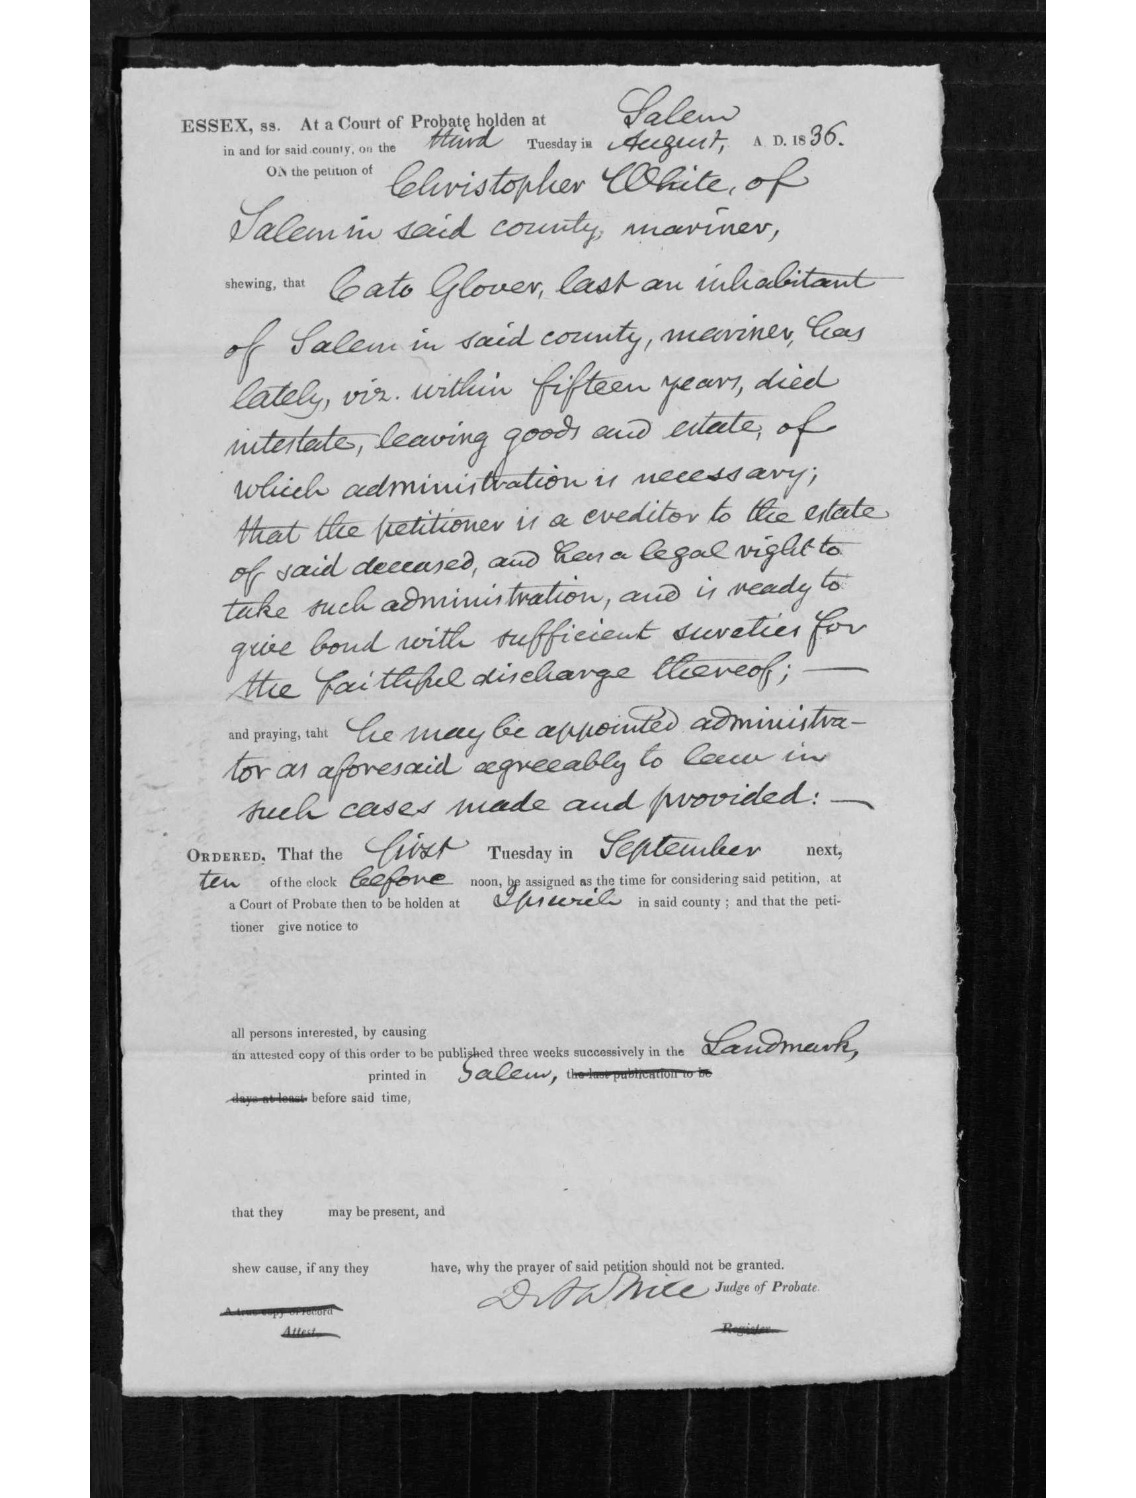 ESSEX, ss. At a Court of Probate holden at Salem
in and for said county, on the third Tuesday in August, A D. 1836.
ON the petition of Christopher White, of
Salem in said county, mariner,
shewing, that Cato Glover, last an inhabitant
of Salem in said county, mariner, has
lately, viz. within fifteen years, died
intestate, leaving goods and estate, of
which administration is necessary;
that the petitioner is a creditor to the estate
of said deceased, and has a legal right to
take such administration, and is ready to
give bond with sufficient sureties for
the faithful discharge thereof; —
and praying, taht he may be appointed administra-
tor as aforesaid agreeably to law in
such cases made and provided: —
ORDERED, That the first Tuesday in September next,
ten of the clock before noon, be assigned as the time for considering said petition, at
a Court of Probate then to be holden at Ipswich in said county ; and that the peti-
tioner give notice to
all persons interested, by causing
an attested copy of this order to be published three weeks successively in the Landmark,
printed in Salem, the last publication to be
days at least before said time,
that they may be present, and
shew cause, if any they have, why the prayer of said petition should not be granted.
D A White Judge of Probate.
A true copy of record
Attest,
Register.